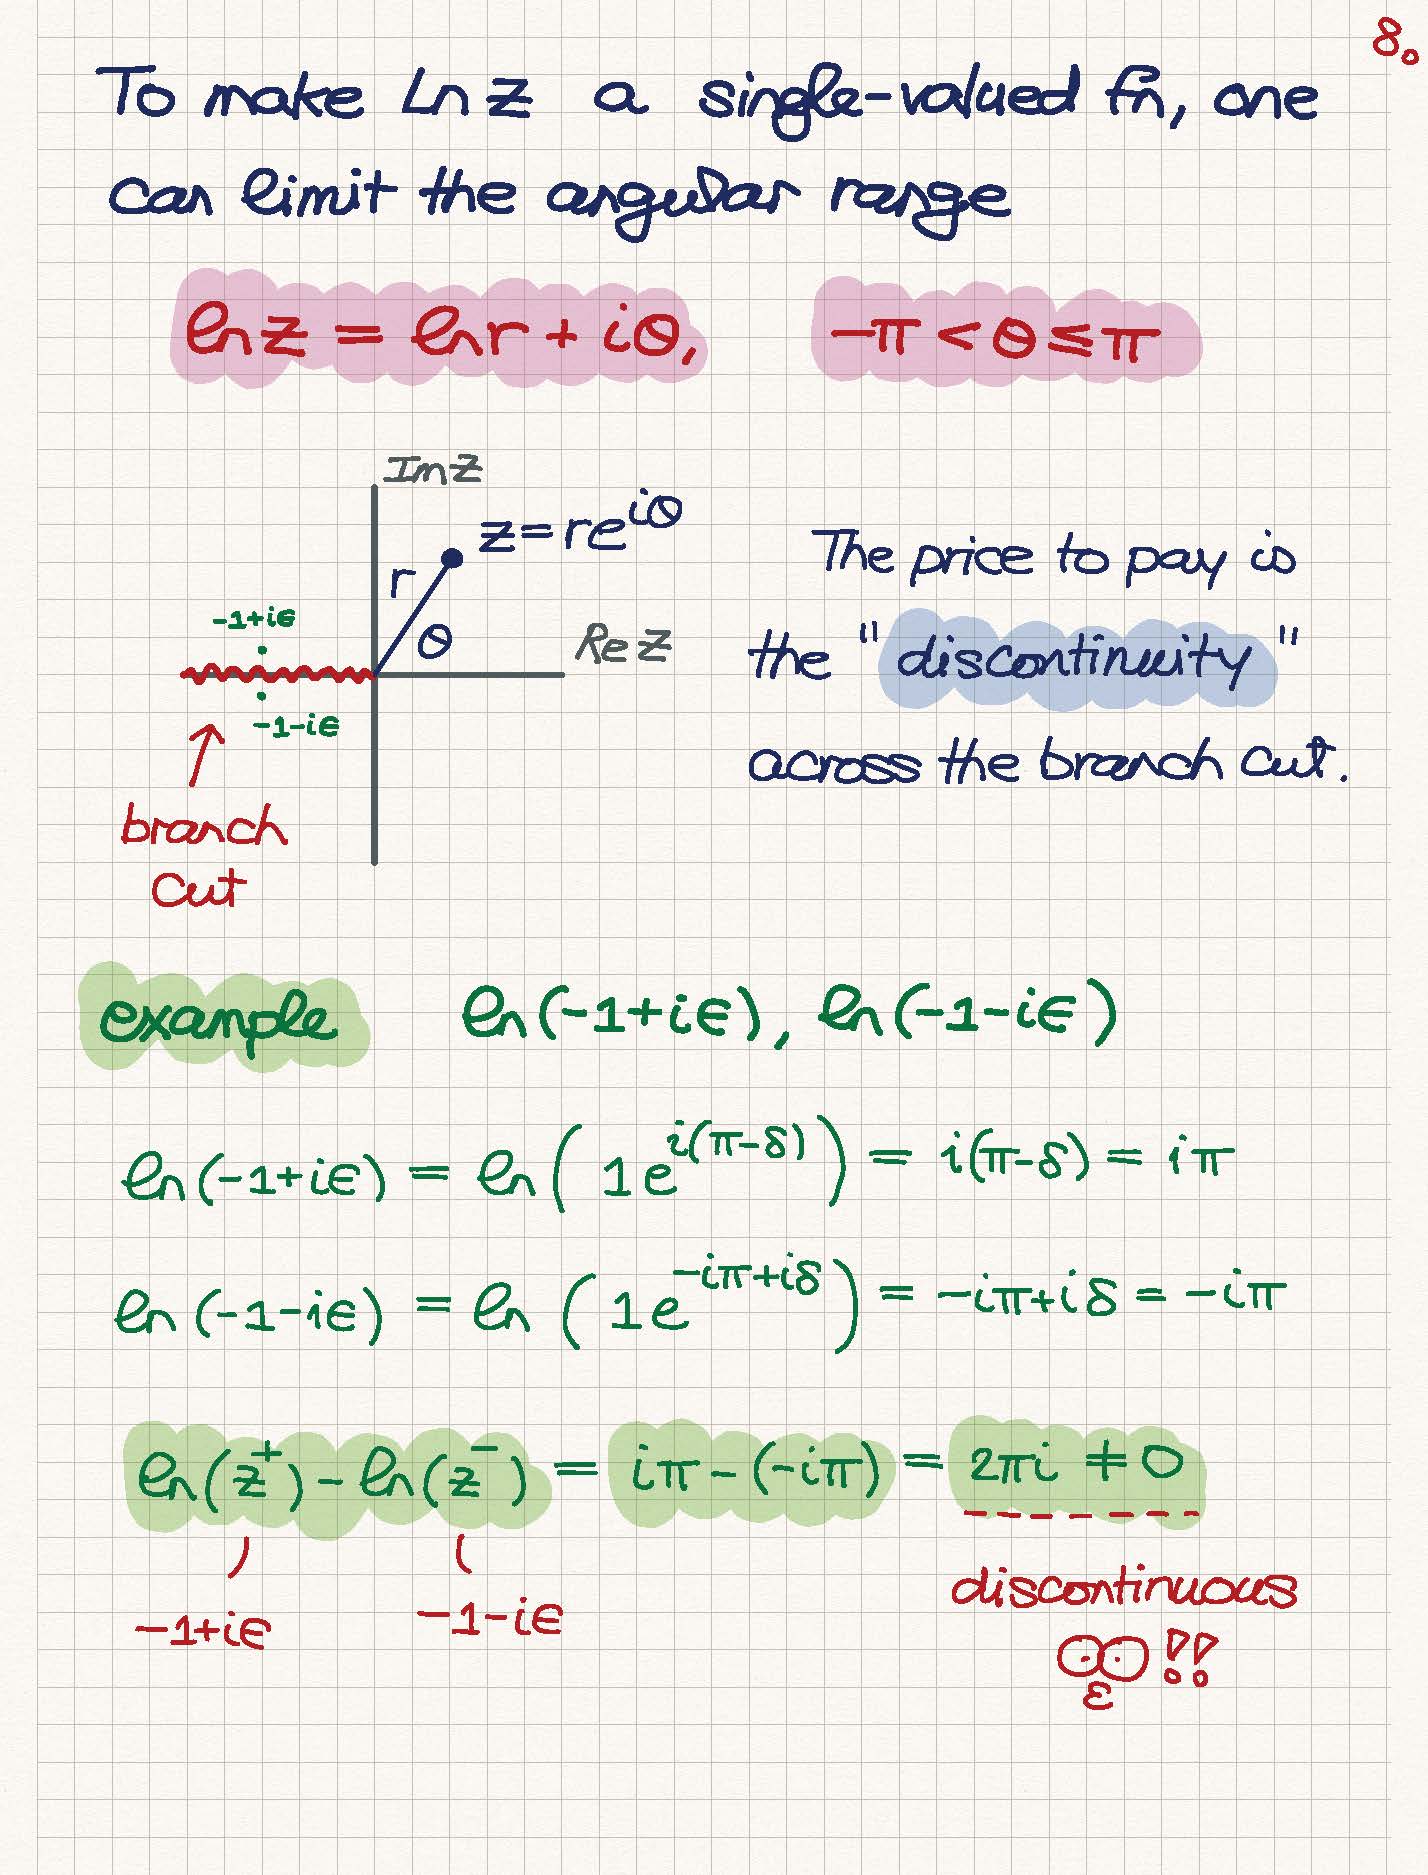 8.
To make Ln z a single-valued fn, one
can limit the angular range
ln z = ln r + iθ, -π < θ ≤ π
Im z
z = re^{iθ}
r
θ
Re z
-1+iϵ
-1-iϵ
branch
cut
The price to pay is
the "discontinuity"
across the branch cut.
example ln(-1+iϵ), ln(-1-iϵ)
ln(-1+iϵ) = ln(1e^{i(π-δ)}) = i(π-δ) = iπ
ln(-1-iϵ) = ln(1e^{-iπ+iδ}) = -iπ+iδ = -iπ
ln(z⁺) - ln(z⁻) = iπ - (-iπ) = 2πi ≠ 0
-1+iϵ -1-iϵ
discontinuous
!!